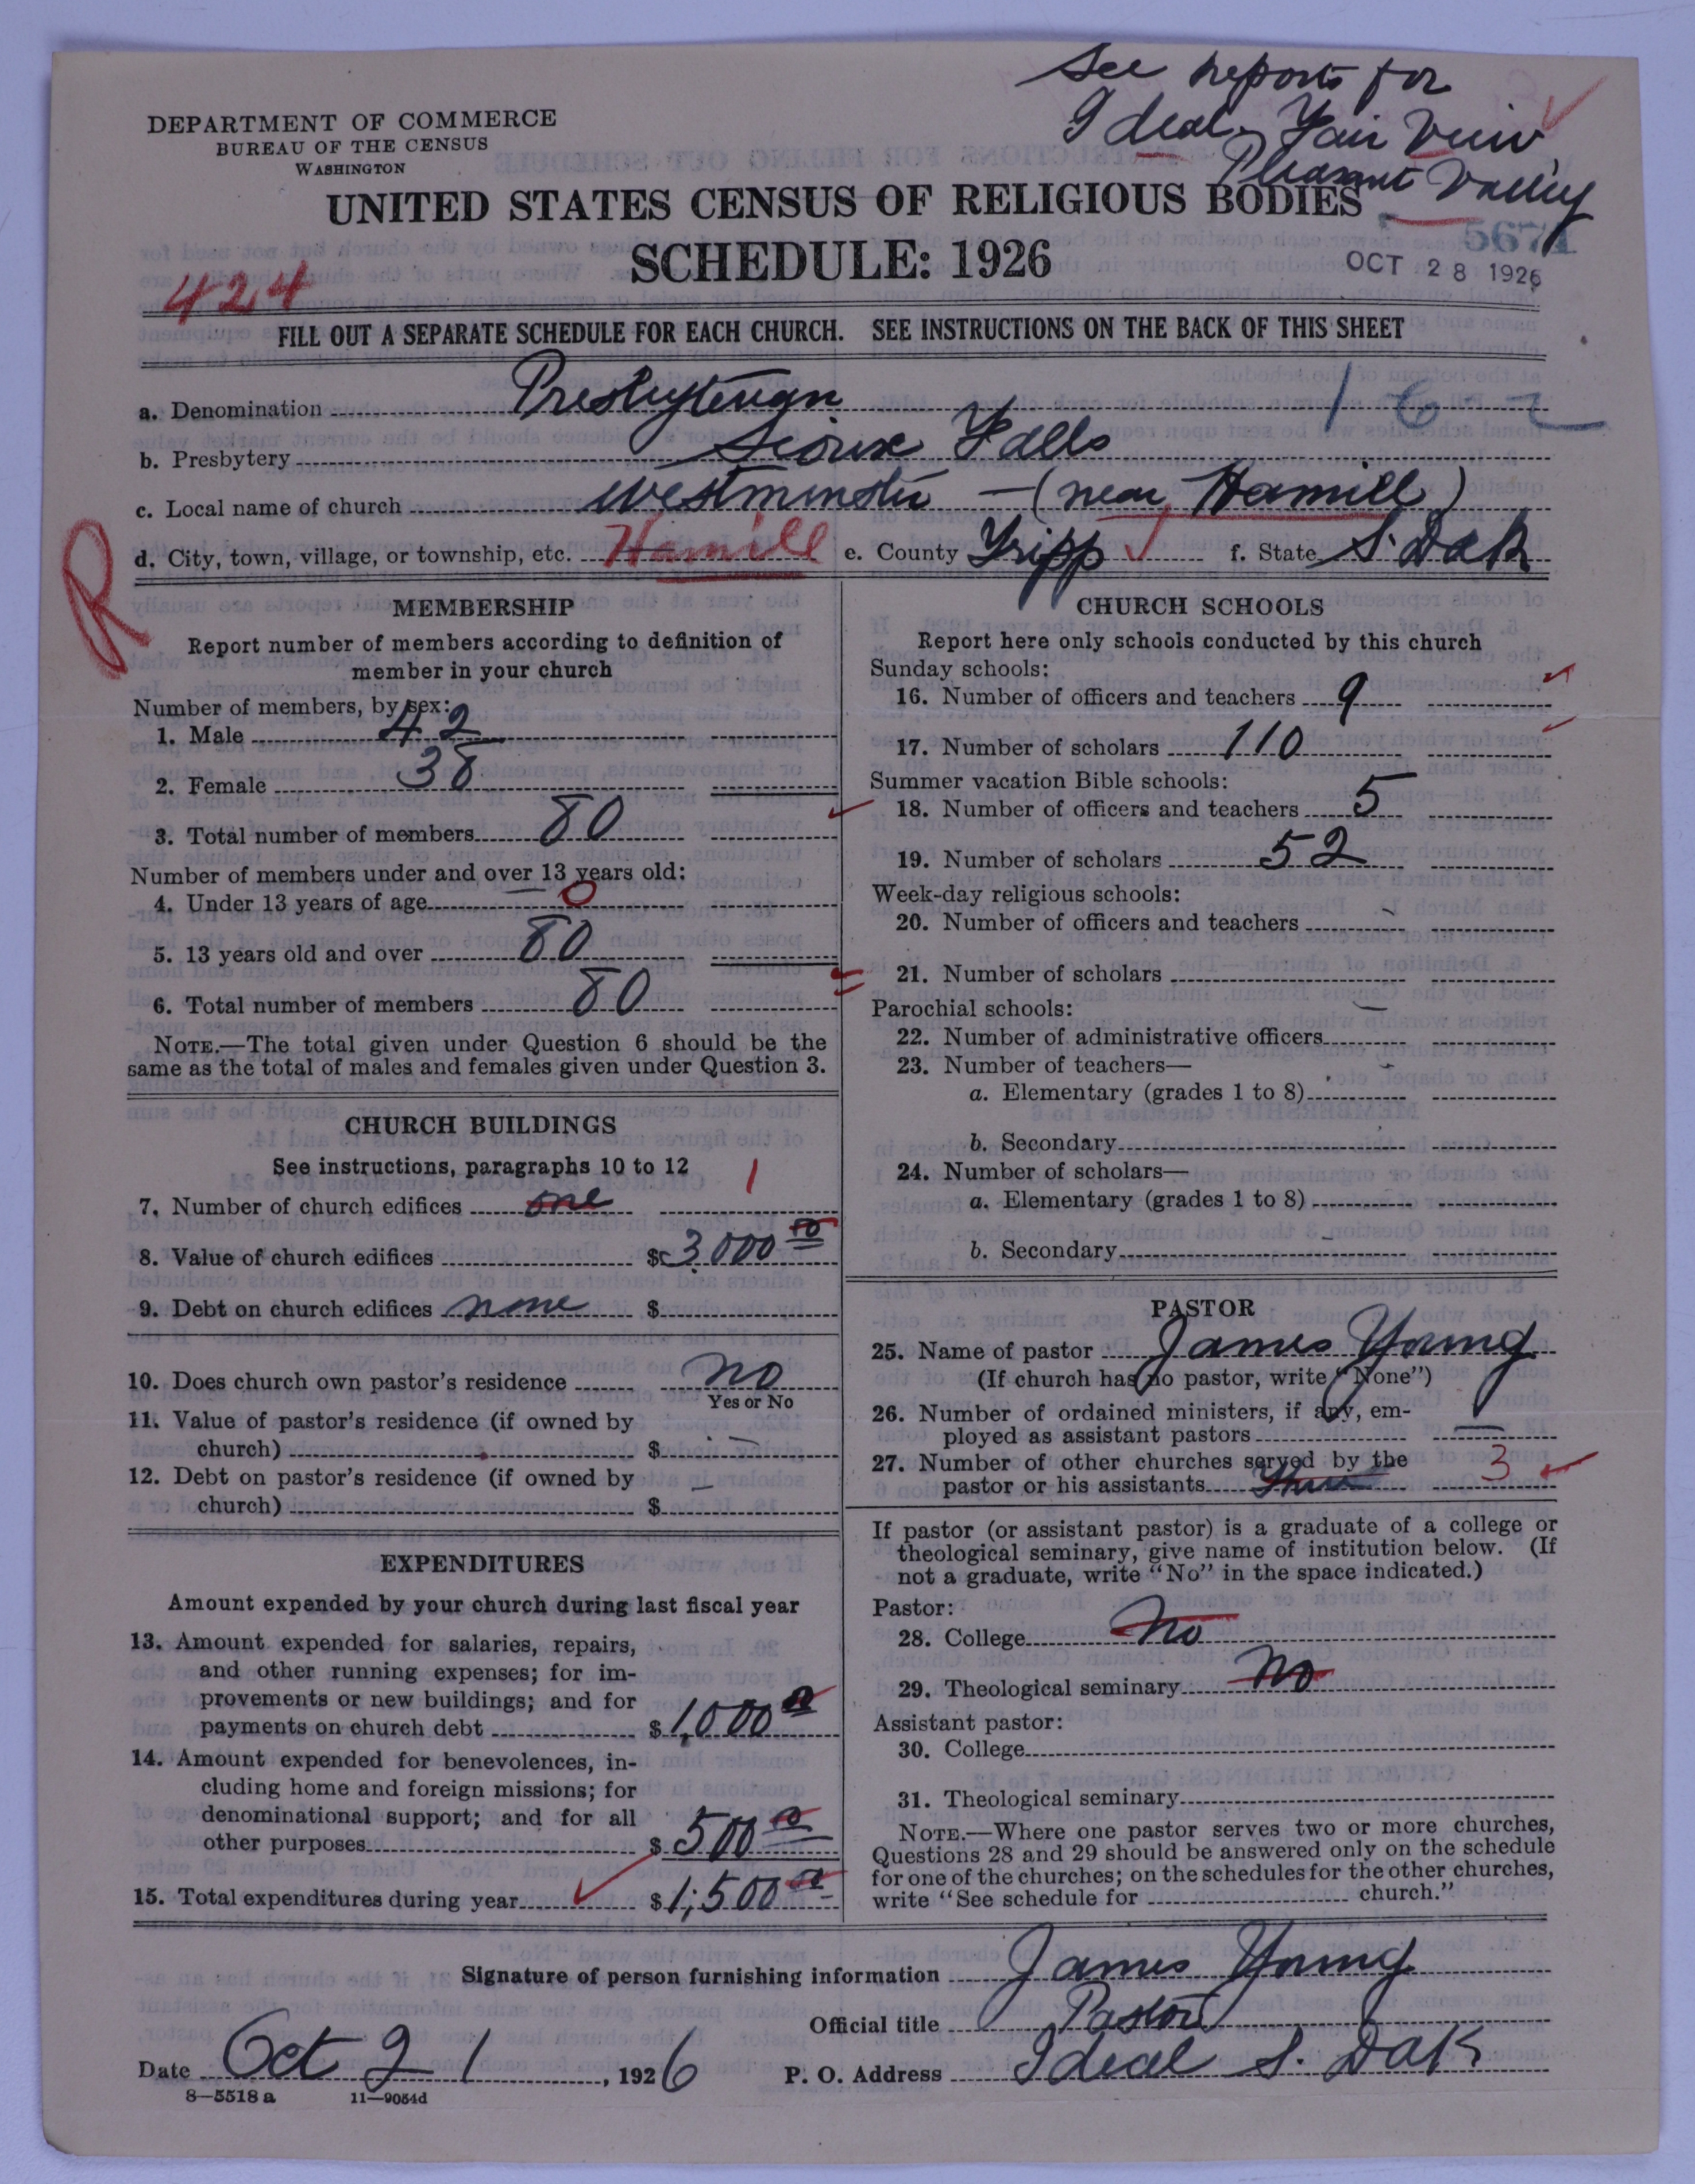 See reports for
Ideal, Fair View,
Pleasant Valley
DEPARTMENT OF COMMERCE
BUREAU OF THE CENSUS
WASHINGTON
UNITED STATES CENSUS OF RELIGIOUS BODIES
SCHEDULE: 1926
5671
OCT 28 1926
424
FILL OUT A SEPARATE SCHEDULE FOR EACH CHURCH. SEE INSTRUCTIONS ON THE BACK OF THIS SHEET
a. Denomination Presbyterian 162
b. Presbytery Sioux Falls
c. Local name of church Westminster - (near Hamill)
d. City, town, village, or township, etc. Hamill e. County Tripp f. State S. Dak
R
MEMBERSHIP
Report number of members according to definition of
member in your church
Number of members, by sex:
1. Male 42
2. Female 38
3. Total number of members 80
Number of members under and over 13 years old:
4. Under 13 years of age 0
5. 13 years old and over 80
6. Total number of members 80
NOTE.—The total given under Question 6 should be the
same as the total of males and females given under Question 3.
CHURCH BUILDINGS
See instructions, paragraphs 10 to 12
7. Number of church edifices one 1
8. Value of church edifices $3000 00
9. Debt on church edifices none $
10. Does church own pastor's residence no
Yes or No
11. Value of pastor's residence (if owned by
church) $ -
12. Debt on pastor's residence (if owned by
church) - $
EXPENDITURES
Amount expended by your church during last fiscal year
13. Amount expended for salaries, repairs,
and other running expenses; for im-
provements or new buildings; and for
payments on church debt $1,000 00
14. Amount expended for benevolences, in-
cluding home and foreign missions; for
denominational support; and for all
other purposes $500 00
15. Total expenditures during year $1,500 00
CHURCH SCHOOLS
Report here only schools conducted by this church
Sunday schools:
16. Number of officers and teachers 9
17. Number of scholars 110
Summer vacation Bible schools:
18. Number of officers and teachers 5
19. Number of scholars 52
Week-day religious schools:
20. Number of officers and teachers -
21. Number of scholars
Parochial schools: -
22. Number of administrative officers
23. Number of teachers—
a. Elementary (grades 1 to 8)
b. Secondary
24. Number of scholars—
a. Elementary (grades 1 to 8)
b. Secondary -
PASTOR
25. Name of pastor James Young
(If church has no pastor, write "None")
26. Number of ordained ministers, if any, em-
ployed as assistant pastors —
27. Number of other churches served by the
pastor or his assistants three 3
If pastor (or assistant pastor) is a graduate of a college or
theological seminary, give name of institution below. (If
not a graduate, write "No" in the space indicated.)
Pastor:
28. College No
29. Theological seminary No
Assistant pastor:
30. College
31. Theological seminary
NOTE.—Where one pastor serves two or more churches,
Questions 28 and 29 should be answered only on the schedule
for one of the churches; on the schedules for the other churches,
write "See schedule for church."
Signature of person furnishing information James Young
Official title Pastor
Date Oct 21, 1926 P. O. Address Ideal S. Dak
8—5518 a 11—9054d